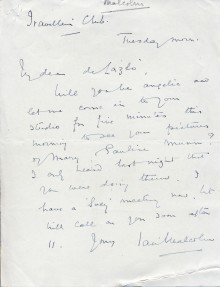 Malcolm
Travellers Club.
Tuesday morn.
My dear de László,
Will you be angelic and
let me come in to your
studio for five minutes this
morning to see your pictures
of Mary & Pauline
I only heard last night that
you were doing them. I
have a 'busy' meeting now, but
will call on you soon after
11. Yours Ian Malcolm